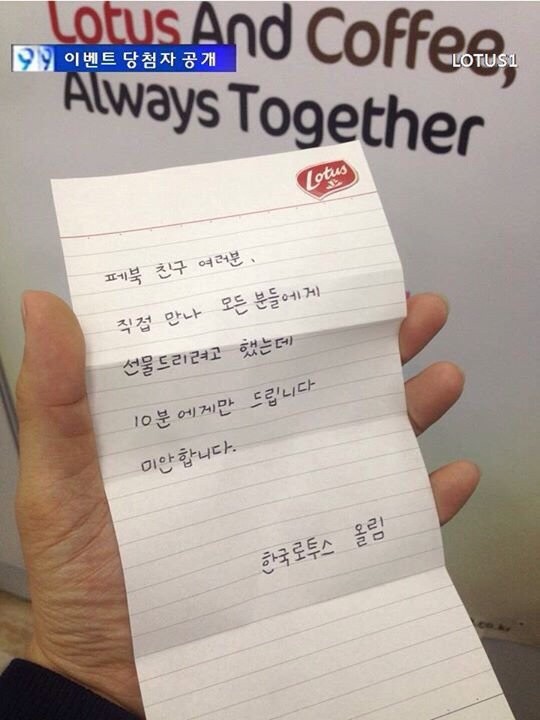 Lotus And Coffee,
99 이벤트 당첨자 공개
LOTUS1
Always Together
Lotus
페북 친구 여러분,
직접 만나 모든 분들에게
선물드리려고 했는데
10분에게만 드립니다
미안합니다.
한국로투스 올림
.co.kr